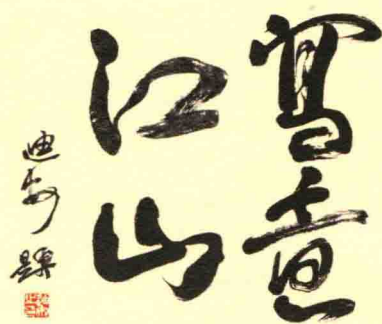 寫意
江山
迪安題